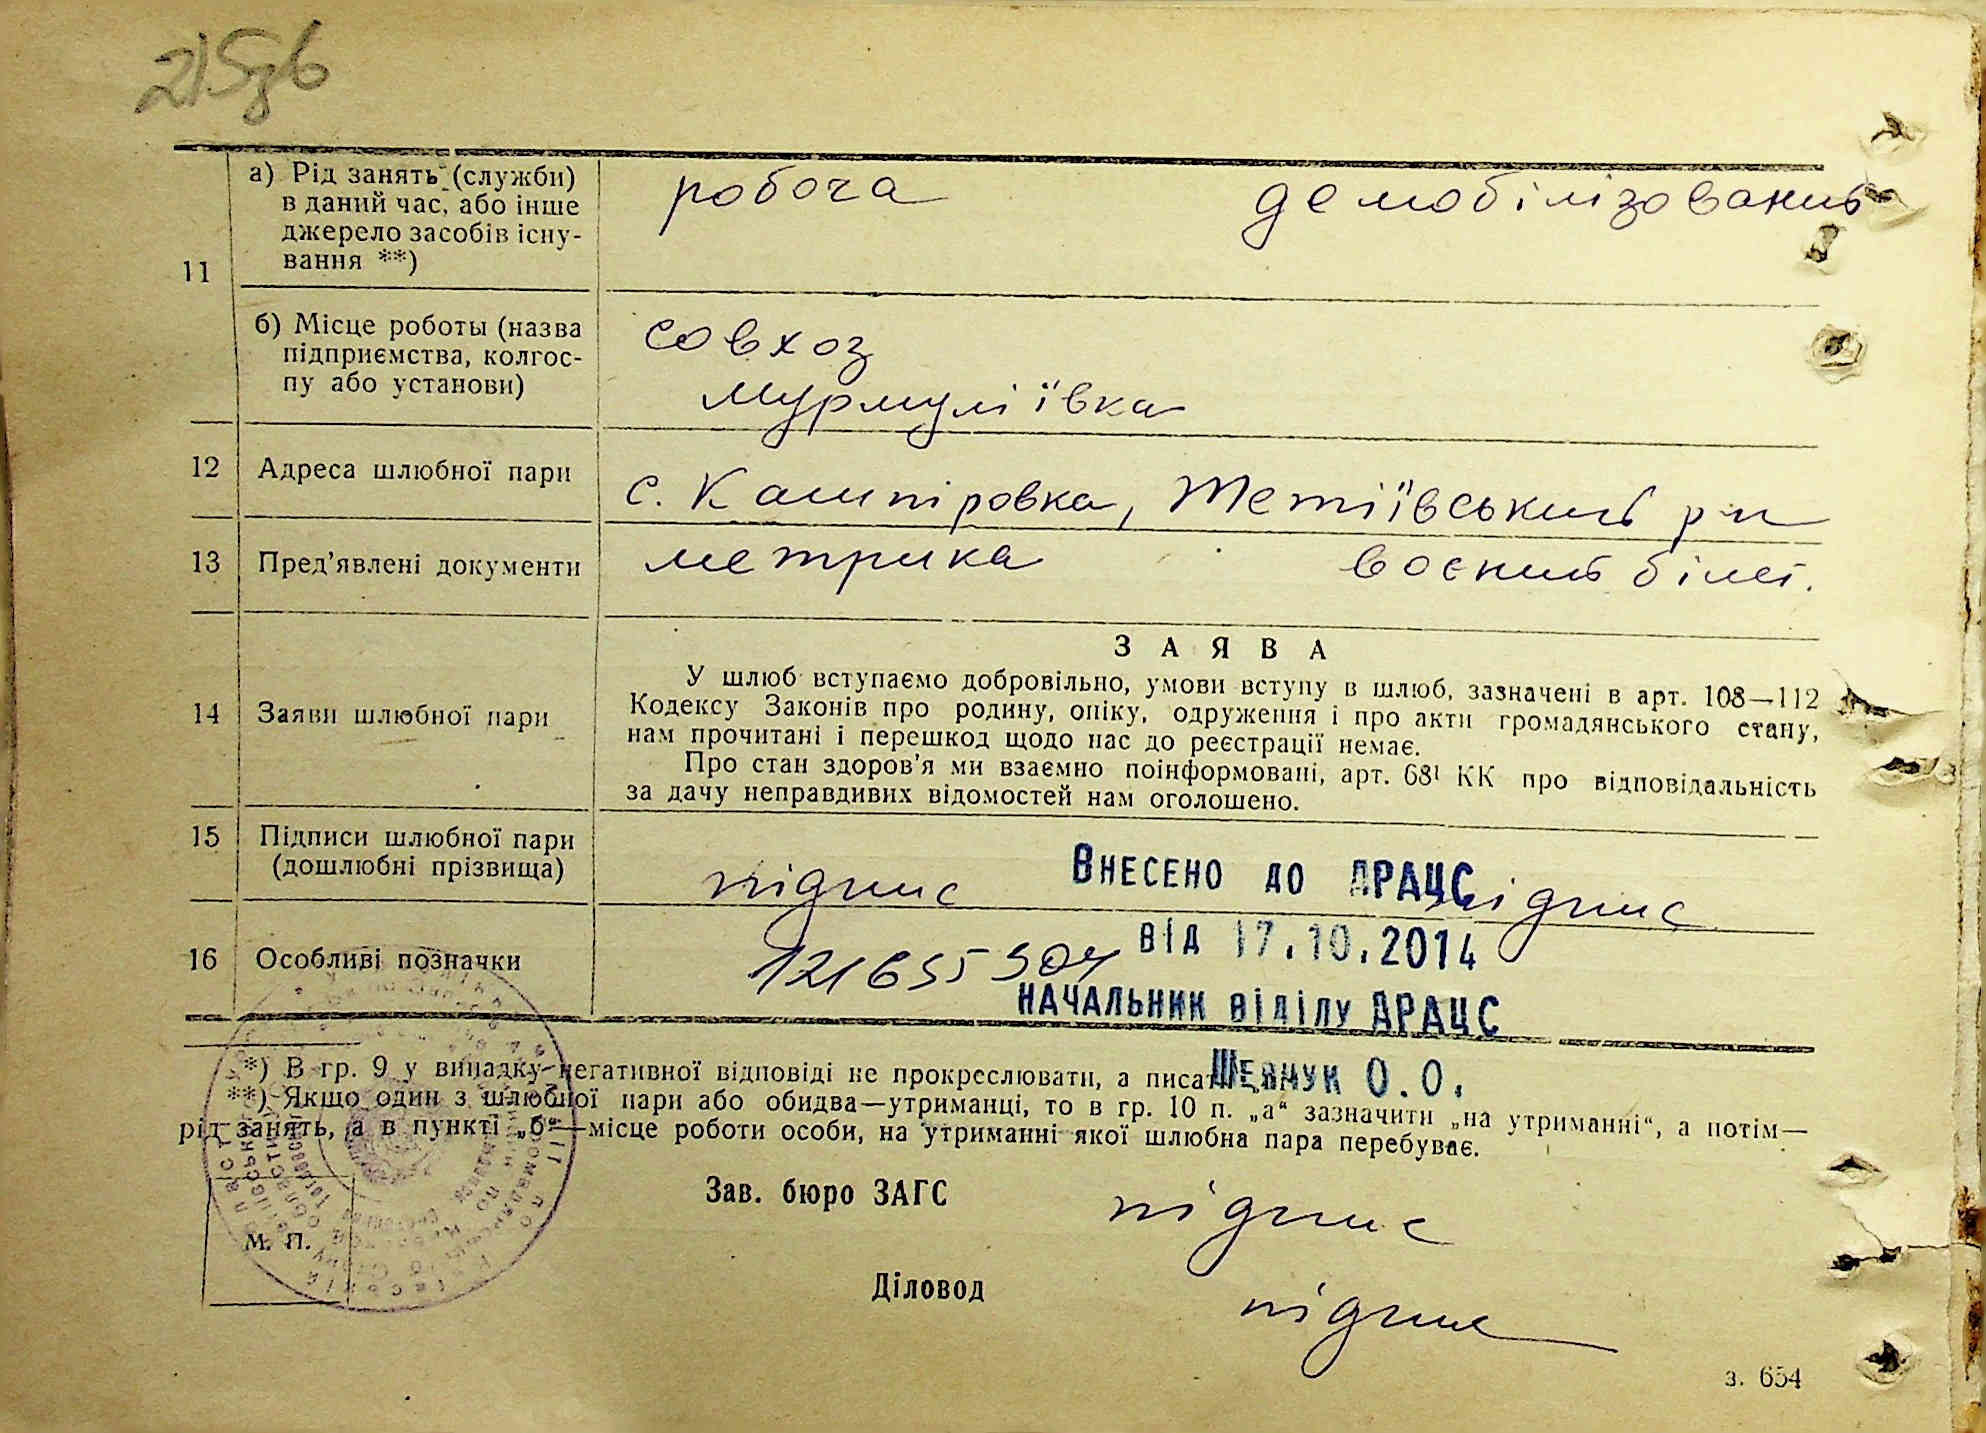 215зв
11
а) Рід занять (служби) в даний час, або інше джерело засобів існування **)
робоча
демобілізований
б) Місце роботы (назва підприємства, колгоспу або установи)
совхоз
Мурмуліївка
12 Адреса шлюбної пари
с. Кашпіровка, Тетіївський р-н
13 Пред’явлені документи
метрика
воєний білет.
14 Заяви шлюбної пари
ЗАЯВА
У шлюб вступаємо добровільно, умови вступу в шлюб, зазначені в арт. 108—112
Кодексу Законів про родину, опіку, одруження і про акти громадянського стану,
нам прочитані і перешкод щодо нас до реєстрації немає.
Про стан здоров’я ми взаємно поінформовані, арт. 68¹ КК про відповідальність
за дачу неправдивих відомостей нам оголошено.
15 Підписи шлюбної пари
(дошлюбні прізвища)
підпис
підпис
Внесено до ДРАЦС
від 17.10.2014
начальник відділу ДРАЦС
Шевчук О.О.
16 Особливі позначки
*) В гр. 9 у випадку негативної відповіді не прокреслювати, а писати
**) Якщо один з шлюбної пари або обидва—утриманці, то в гр. 10 п. „а“ зазначити „на утриманні“, а потім—
рід занять, а в пункті „б“—місце роботи особи, на утриманні якої шлюбна пара перебуває.
Зав. бюро ЗАГС
підпис
М. П.
Діловод
підпис
з. 654